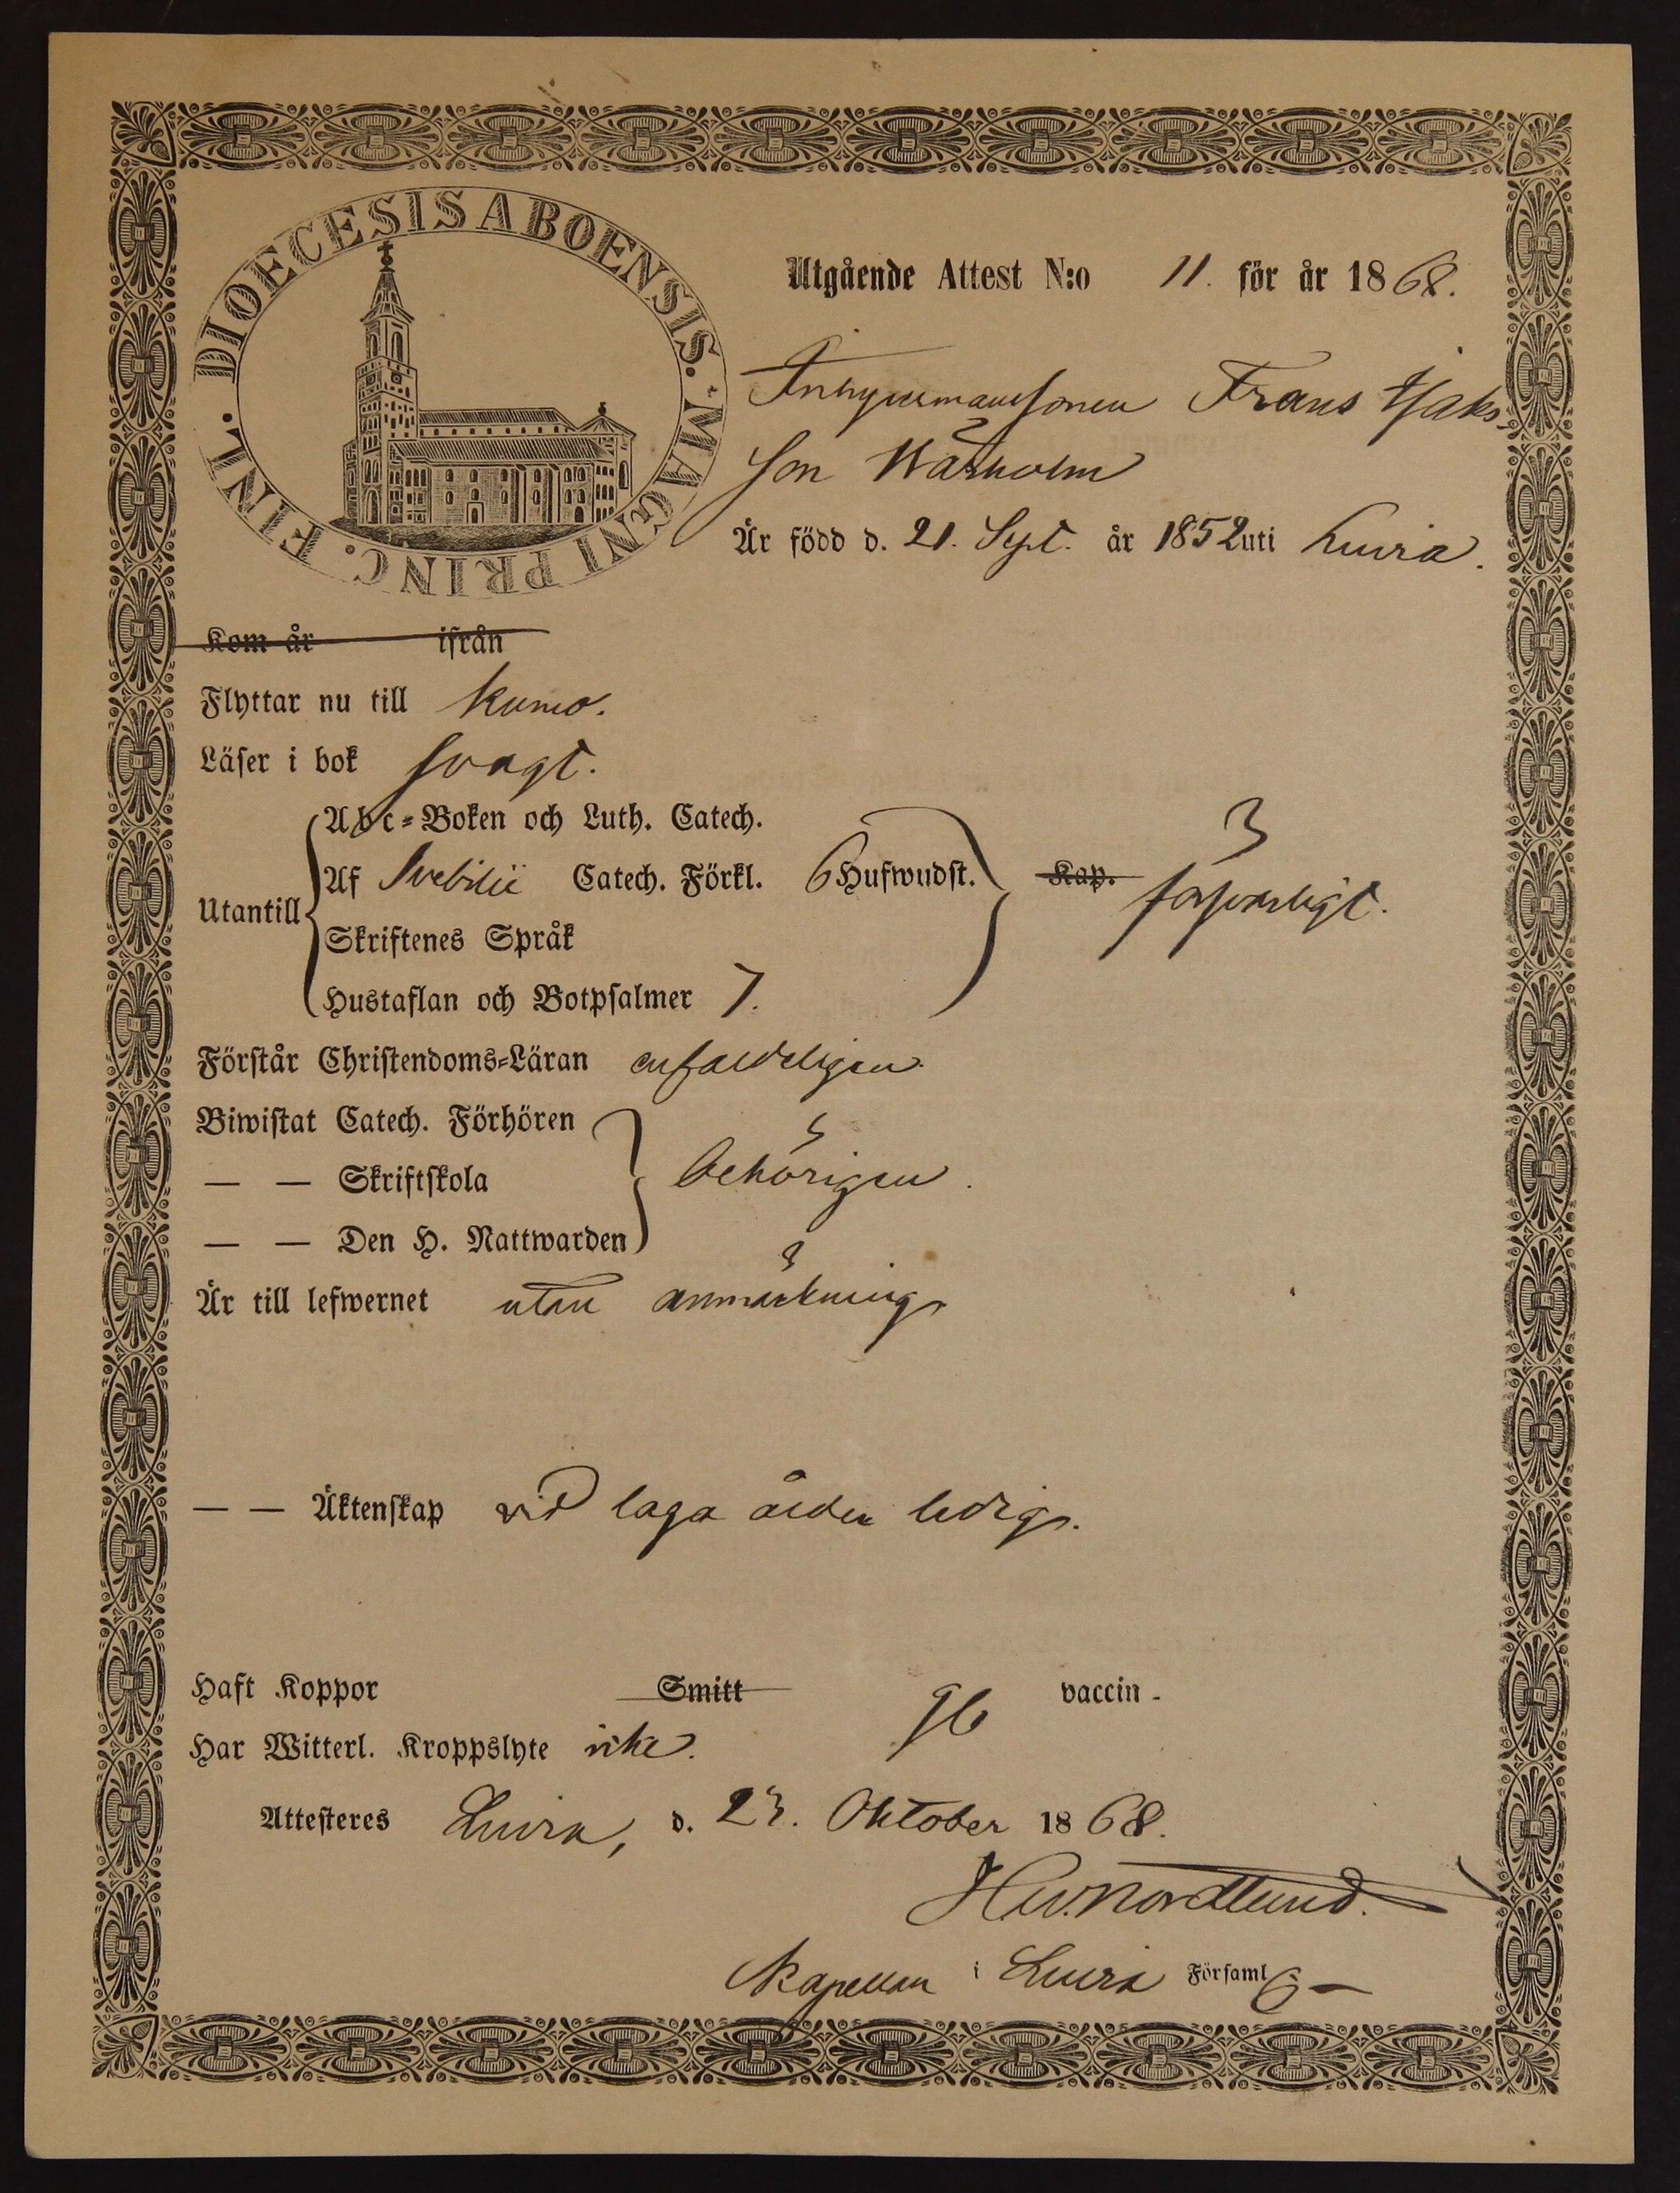 DIOECESIS ABOENSIS. MAGNI PRINC. FINL.
Utgående Attest N:o 11. för år 1868.
Inhysesmanssonen Frans Isaks-
son Wärholm
Är född d. 21. Sept. år 1852 uti Luvia.
Kom år ifrån
Flyttar nu till Kumo.
Läser i bok svagt.
Abc-Boken och Luth. Catech.
Utantill
Af Svebilii Catech. Förkl. 6 Hufwudst. Kap. försvarligt.
Skriftenes Språk
Hustaflan och Botpsalmer 7.
Förstår Christendoms-Läran enfaldeligen.
Biwistat Catech. Förhören
— — Skriftskola behörigen.
— — Den H. Nattwarden
Är till lefwernet utan anmärkning
— — Äktenskap vid laga ålder ledig.
Haft Koppor Smitt vaccin.
Har Witterl. Kroppslyte icke.
Attesteres Luvia, d. 23. Oktober 1868.
Nordlund.
Kapellan i Luvia Församl